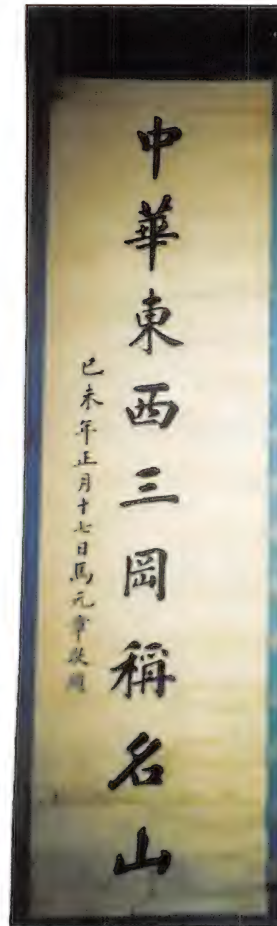 中華東西三岡稱名山
己未年正月十七日馬元章敬題